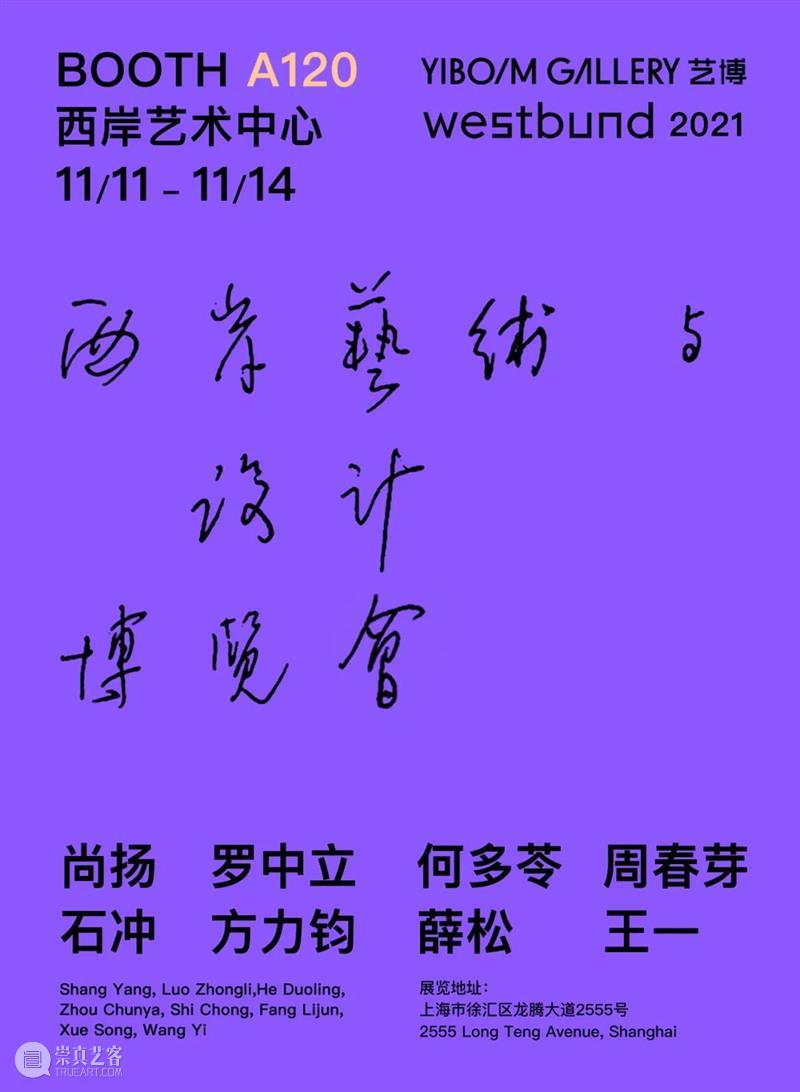 BOOTH A120
西岸艺术中心
11/11 – 11/14
YIBO/M GALLERY 艺博
westbund 2021
西岸藝術与
设计
博覽會
尚扬 罗中立 何多苓 周春芽
石冲 方力钧 薛松 王一
Shang Yang, Luo Zhongli,He Duoling,
Zhou Chunya, Shi Chong, Fang Lijun,
Xue Song, Wang Yi
展览地址：
上海市徐汇区龙腾大道2555号
2555 Long Teng Avenue, Shanghai
崇真艺客
TRUEART.COM